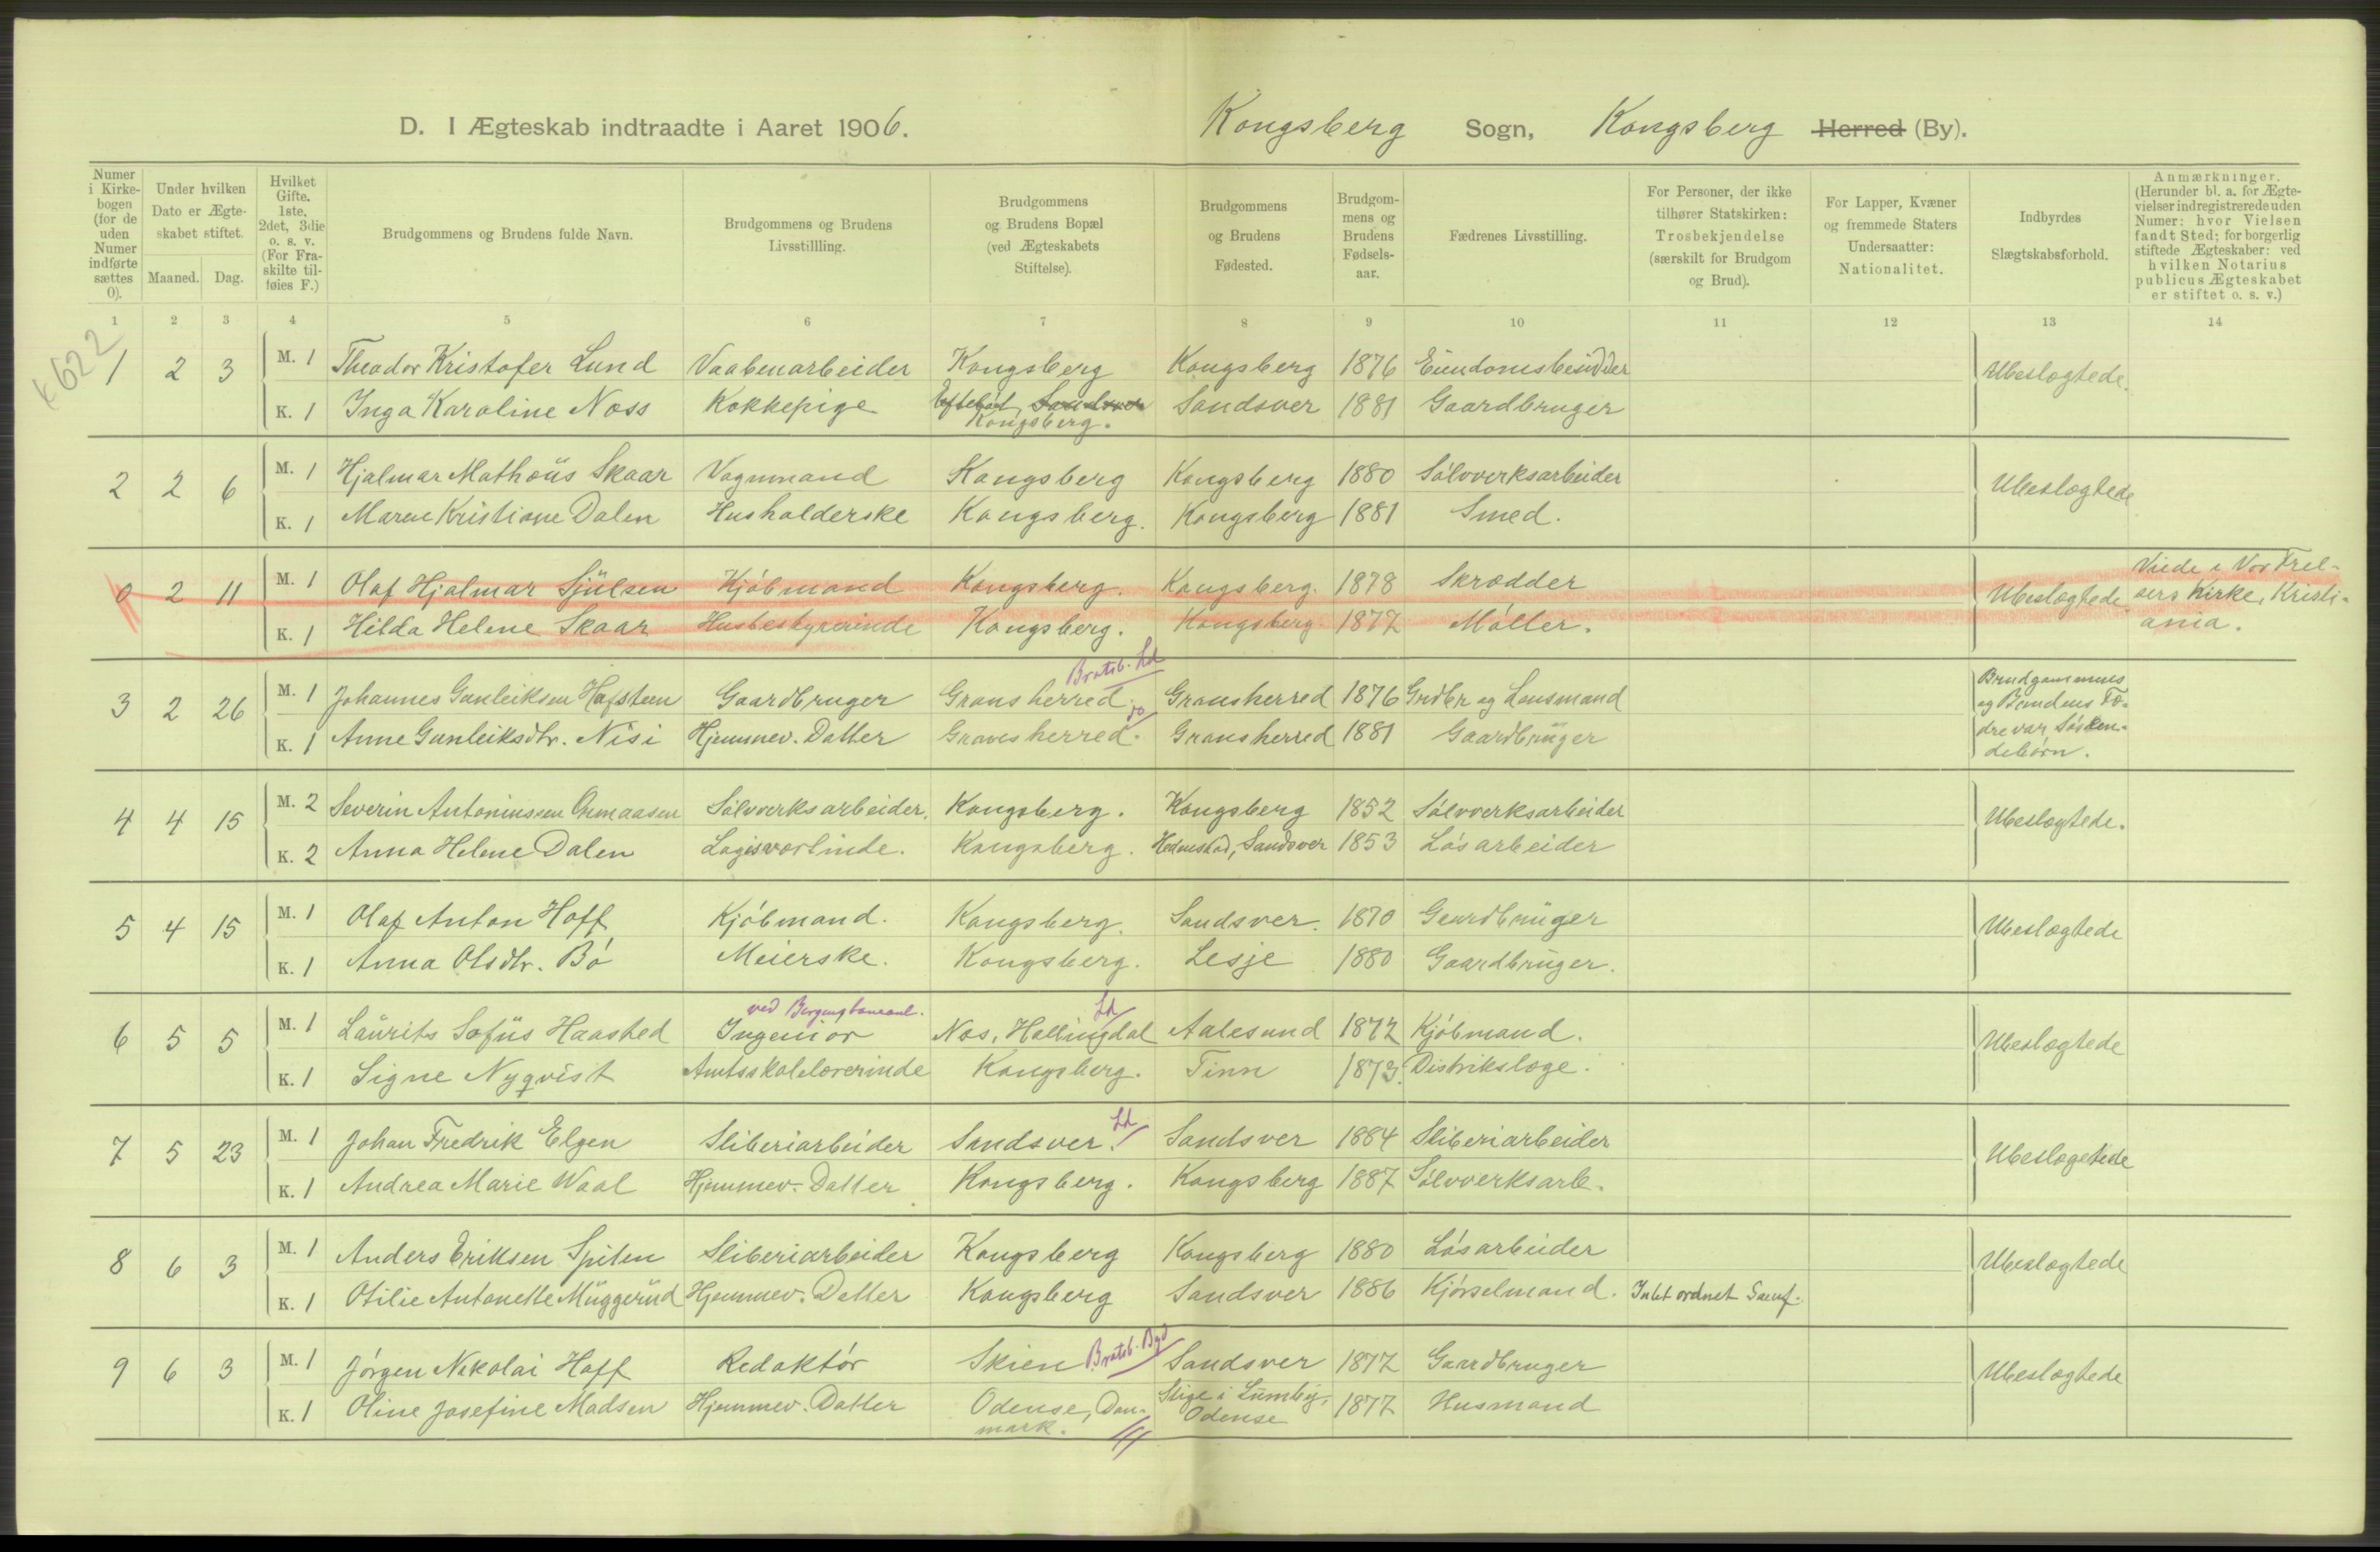 D. I Ægteskab indtraadte i Aaret 1906. Kongsberg Sogn, Kongsberg Herred (By).
Numer i Kirkebogen (for de uden Numer indførte sættes 0). Under hvilken Dato er Ægteskabet stiftet. Maaned. Dag. Hvilket Gifte. 1ste, 2det, 3die o. s. v. (For Fraskilte tilføies F.) Brudgommens og Brudens fulde Navn. Brudgommens og Brudens Livsstillling. Brudgommens og Brudens Bopæl (ved Ægteskabets Stiftelse). Brudgommens og Brudens Fødested. Brudgommens og Brudens Fødselsaar. Fædrenes Livsstilling. For Personer, der ikke tilhører Statskirken: Trosbekjendelse (særskilt for Brudgom og Brud). For Lapper, Kvæner og fremmede Staters Undersaatter: Nationalitet. Indbyrdes Slægtskabsforhold. Anmærkninger. (Herunder bl. a. for Ægtevielser indregistrerede uden Numer: hvor Vielsen fandt Sted; for borgerlig stiftede Ægteskaber: ved hvilken Notarius publicus Ægteskabet er stiftet o. s. v.)
1 2 3 4 5 6 7 8 9 10 11 12 13 14
622
1 2 3 M. 1 Theodor Kristofer Lund Vaabenarbeider Kongsberg Kongsberg 1876 Eiendomsbesidder Ubeslægtede.
K. 1 Inga Karoline Noss Kokkepige Eftelød, Sandsver Kongsberg. Sandsver 1881 Gaardbruger
2 2 6 M. 1 Hjalmar Mathæus Skaar Vognmand Kongsberg Kongsberg 1880 Sølvverksarbeider Ubeslægtede
K. 1 Maren Kristiane Dalen Husholderske Kongsberg. Kongsberg 1881 Smed.
0 2 11 M. 1 Olaf Hjalmar Sjulsen Kjøbmand Kongsberg. Kongsberg. 1878 Skrædder Ubeslægtede Viede i Vor Frelsers Kirke, Kristiania.
K. 1 Hilda Helene Skaar Husbestyrerinde Kongsberg. Kongsberg 1877 Møller.
3 2 26 M. 1 Johannes Gunleiksen Hafsteen Gaardbruger Gransherred. Bratsb. Ld Gransherred 1876 Grdbr og Lensmand Brudgommens og Brudens Fædre var Søskendebørn.
K. 1 Anne Gunleiksdtr. Nisi Hjemmev. Datter Gransherred. do Gransherred 1881 Gaardbruger
4 4 15 M. 2 Severin Antoninsen Sølvverksarbeider. Kongsberg. Kongsberg 1852 Sølvverksarbeider Ubeslægtede.
K. 2 Anna Helene Dalen Logisværtinde. Kongsberg. Hedenstad, Sandsver 1853 Løsarbeider
5 4 15 M. 1 Olaf Anton Hoff Kjøbmand. Kongsberg. Sandsver. 1870 Gaardbruger Ubeslægtede
K. 1 Anna Olsdtr. Bø Meierske. Kongsberg. Lesje 1880 Gaardbruger.
6 5 5 M. 1 Laurits Sofus Haasted Ingeniør ved Bergensbaneanl. Nes, Hallingdal Ld Aalesund 1872 Kjøbmand. Ubeslægtede
K. 1 Signe Nyqvist Amtsskolelærerinde Kongsberg. Tinn 1873. Distrikslæge.
7 5 23 M. 1 Johan Fredrik Elgen Sliberiarbeider Sandsver. Ld Sandsver 1884 Sliberiarbeider Ubeslægetede
K. 1 Andrea Marie Waal Hjemmev. Datter Kongsberg. Kongsberg 1887 Sølvverksarb.
8 6 3 M. 1 Anders Eriksen Spiten Sliberiarbeider Kongsberg Kongsberg 1880 Løsarbeider Ubeslægtede
K. 1 Otilie Antonette Muggerud Hjemmev. Datter Kongsberg Sandsver 1886 Kjørselmand. Intet ordnet Samf.
9 6 3 M. 1 Jørgen Nikolai Hoff Redaktør Skien Bratsb. Byd Sandsver 1877 Gaardbruger Ubeslægtede
K. 1 Oline Josefine Madsen Hjemmev. Datter Odense, Danmark. Stige i Lumby, Odense 1877 Husmand